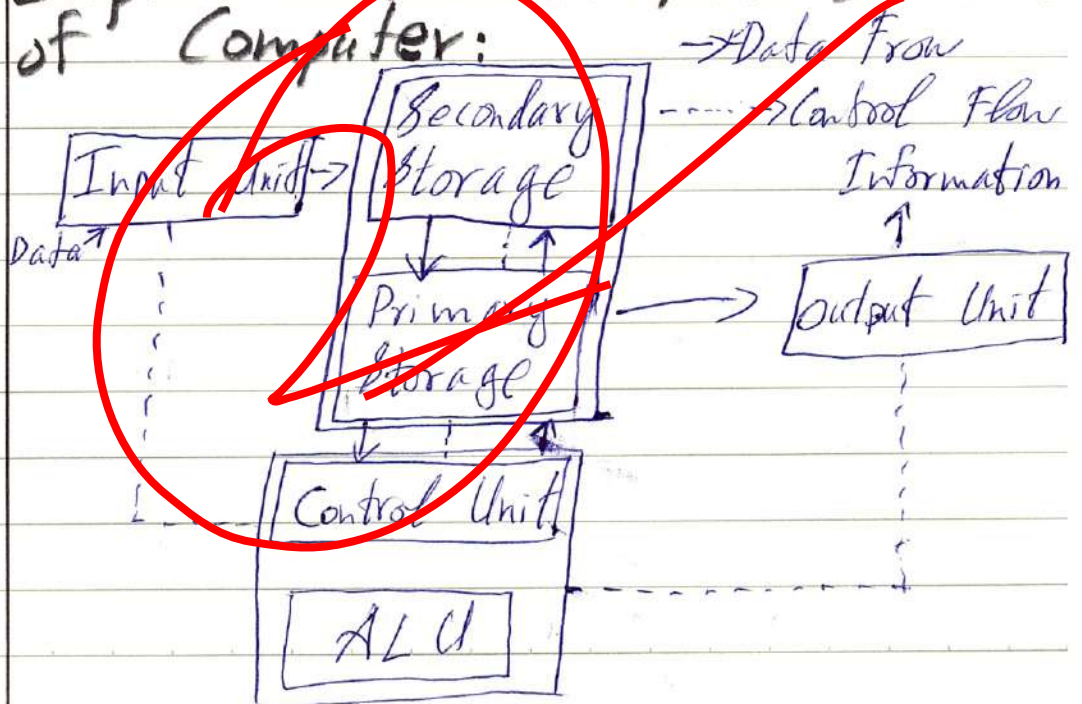 of Computer:
-> Data Frow
-----> Control Flow
Secondary
Storage
Input Unit ->
Information
Data
Primary
Storage
Output Unit
Control Unit
ALU